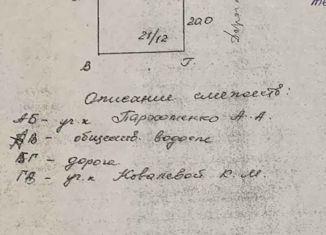 21/12
20.0
В Г
Описание смежеств:
АБ - уч-к Пархоменко А. А.
БВ - обществ.
ВГ - дорога
ГА - уч-к Ковалевой К. М.